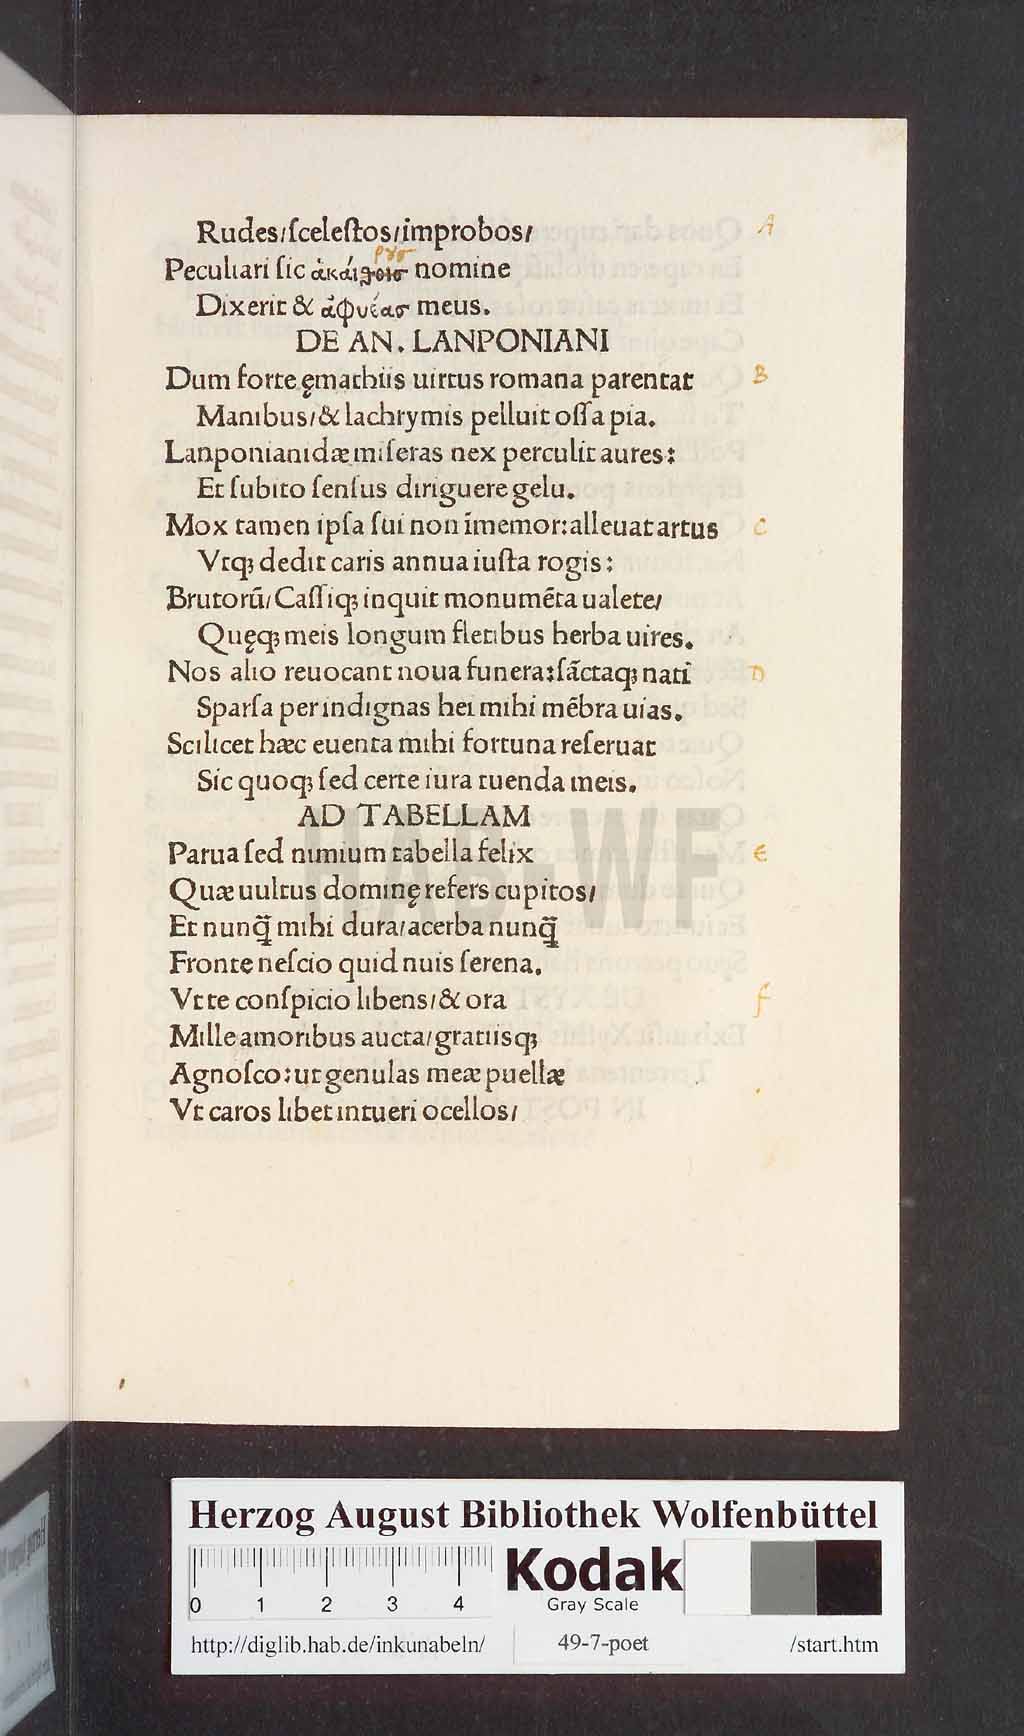 Rudes/ſceleſtos/improbos/ A
ρuσ
Peculiari ſic ἀκάιροισ nomine
Dixerit & ἀφυέασ meus.
DE AN. LANPONIANI
Dum forte ęmathiis uirtus romana parentat B
Manibus/& lachrymis pelluit oſſa pia.
Lanponianidæ miſeras nex perculit aures:
Et ſubito ſenſus diriguere gelu.
Mox tamen ipſa ſui non īmemor:alleuat artus C
Vtqꝫ dedit caris annua iuſta rogis:
Brutorū/Caſſiqꝫ inquit monumēta ualete/
Quęqꝫ meis longum fletibus herba uires.
Nos alio reuocant noua funera:ſāctaqꝫ nati D
Sparſa per indignas hei mihi mēbra uias.
Scilicet hæc euenta mihi fortuna reſeruat
Sic quoqꝫ ſed certe iura tuenda meis.
AD TABELLAM
Parua ſed nimium tabella felix E
Quæ uultus dominę refers cupitos/
Et nunq̃ mihi dura/acerba nunq̃
Fronte neſcio quid nuis ſerena.
Vt te conſpicio libens/& ora F
Mille amoribus aucta/gratiisqꝫ
Agnoſco:ut genulas meæ puellæ
Vt caros libet intueri ocellos/
HAB WF
Herzog August Bibliothek Wolfenbüttel
0 1 2 3 4
Kodak
Gray Scale
http://diglib.hab.de/inkunabeln/ 49-7-poet /start.htm